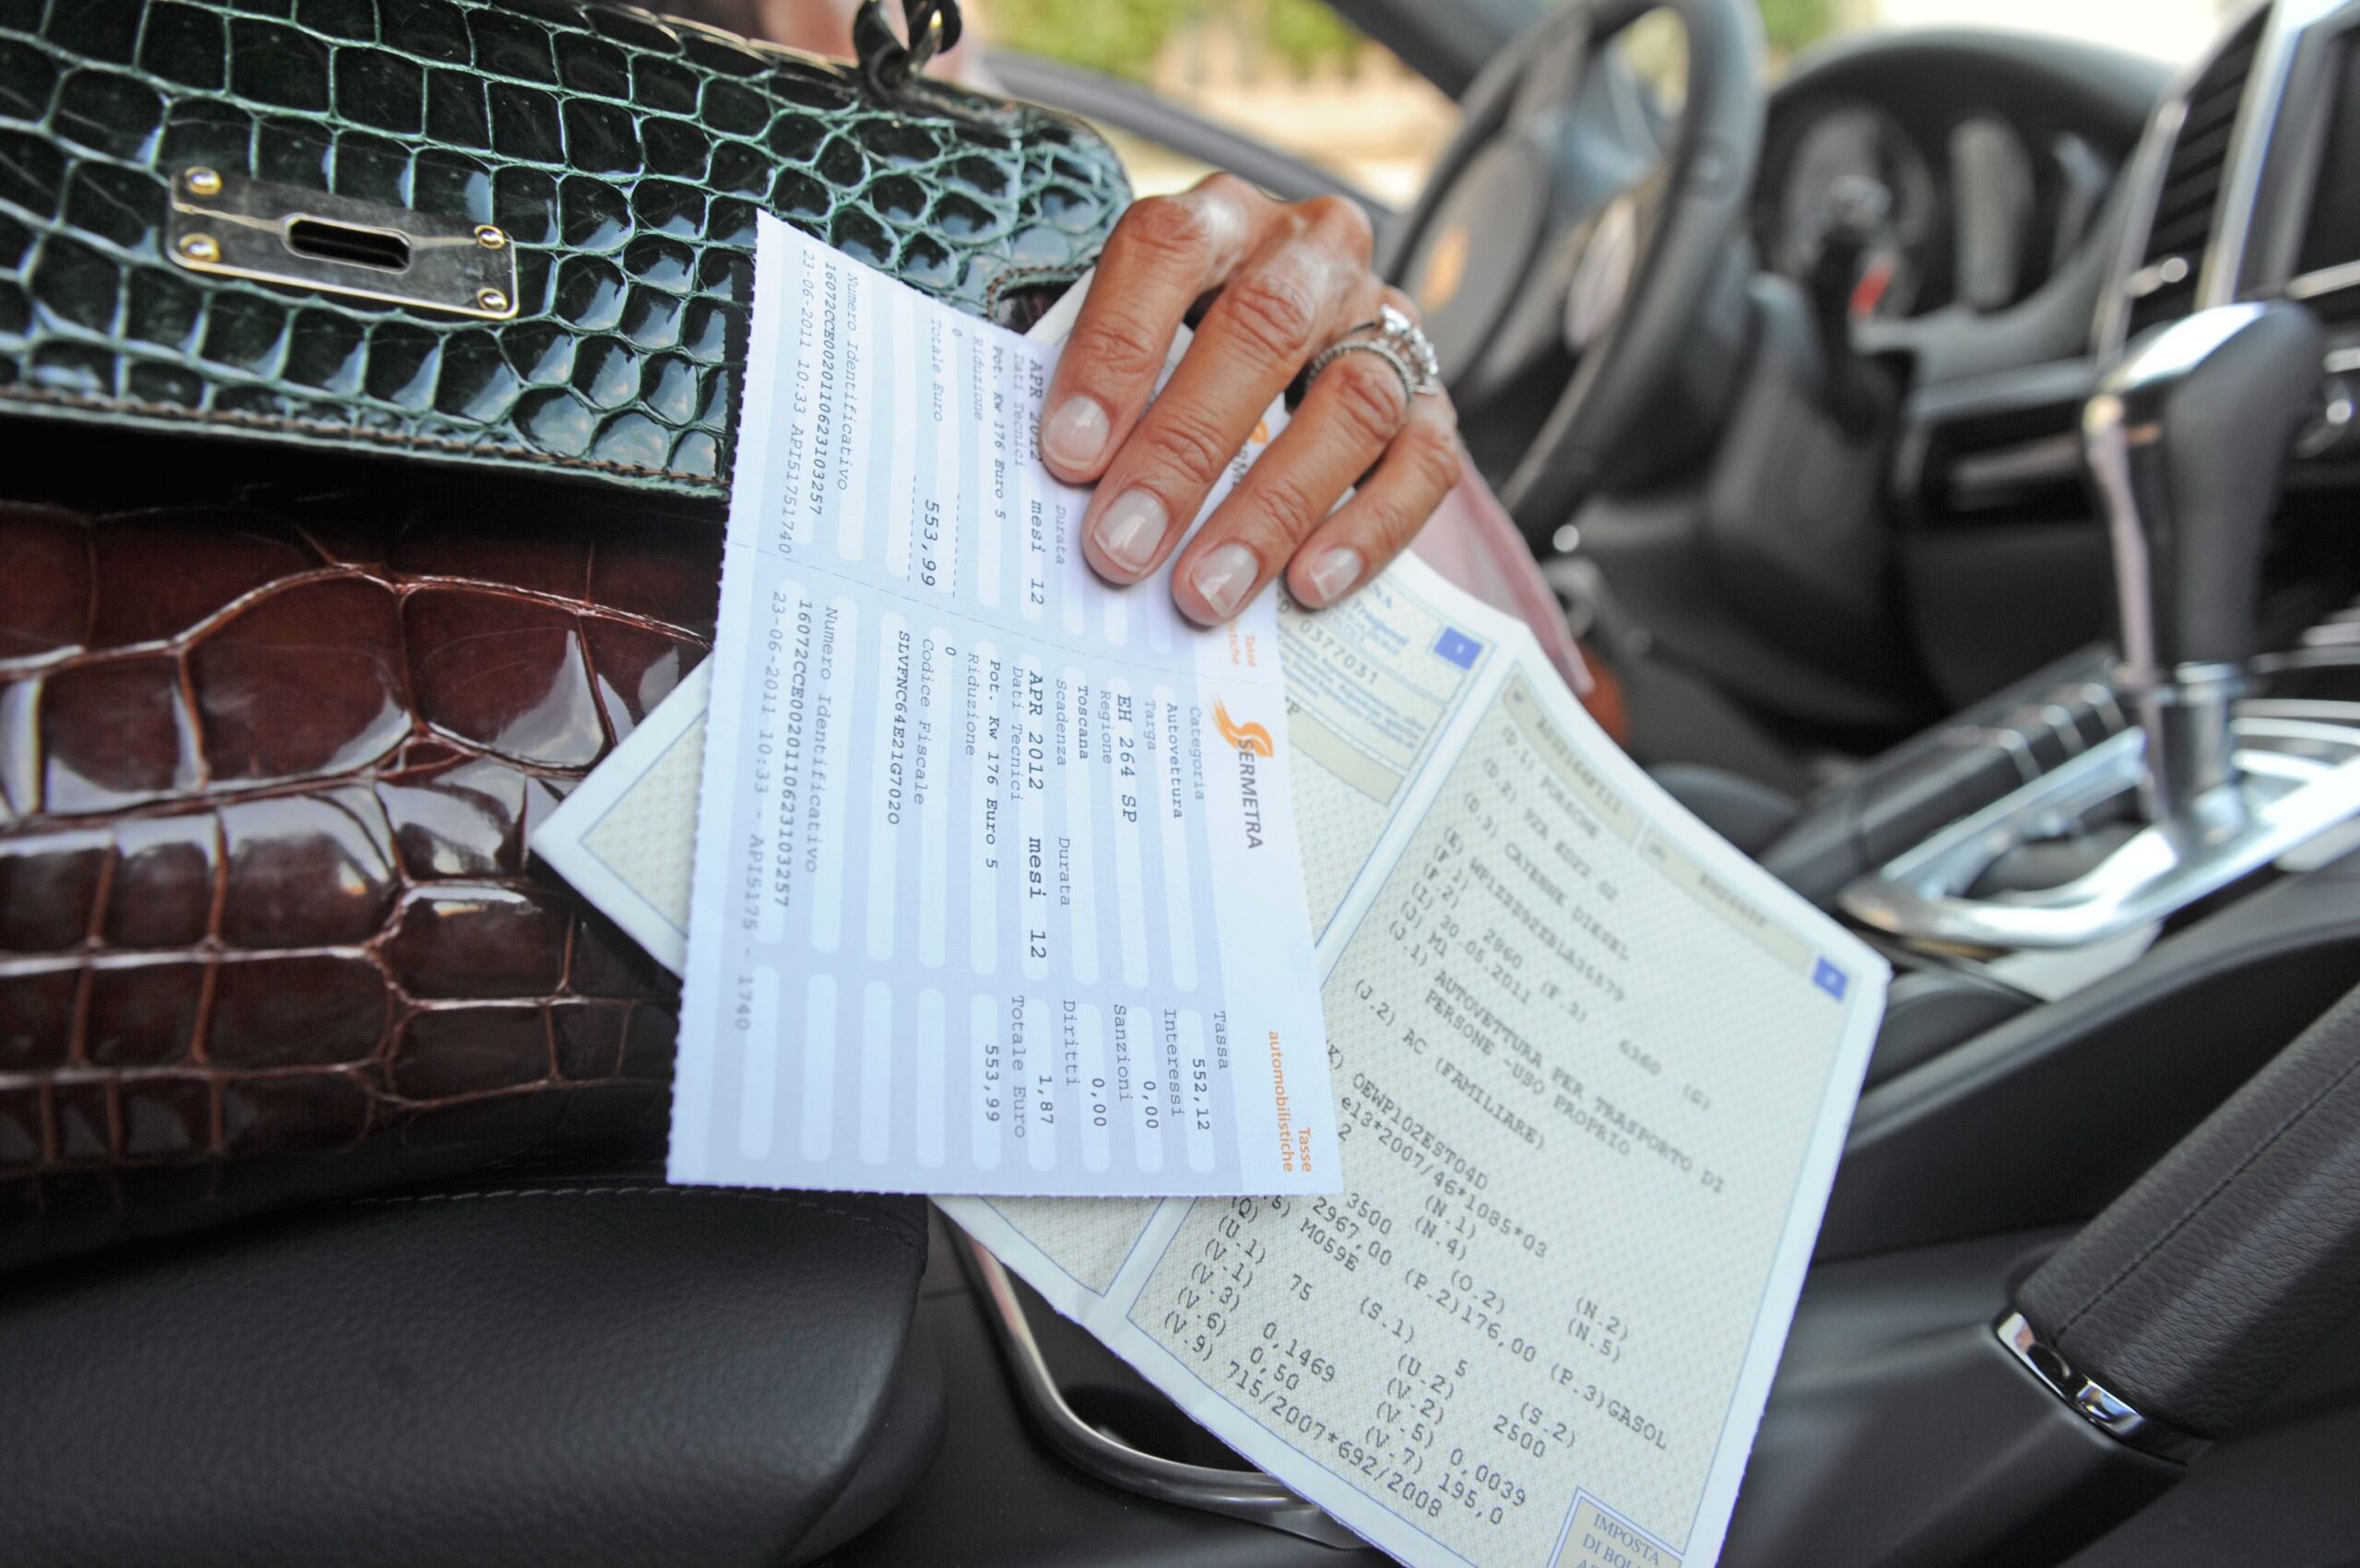 Numero Identificativo
16072CCE0020110623103257
23-06-2011 10:33 API51751740
APR 2012 mesi 12
Durata
Dati Tecnici
Pot. Kw 176 Euro 5
Riduzione
0
Totale Euro
553,99
SERMETRA
Tasse
automobilistiche
Categoria
Autovettura
Targa
EH 264 SP
Regione
Toscana
Scadenza Durata
APR 2012 mesi 12
Dati Tecnici
Pot. Kw 176 Euro 5
Riduzione
0
Codice Fiscale
SLVFNC64E21G702O
Numero Identificativo
16072CCE0020110623103257
23-06-2011 10:33 - API5175 - 1740
Tassa
552,12
Interessi
0,00
Sanzioni
0,00
Diritti
1,87
Totale Euro
553,99
Tasse
0377031
(D.1) PORSCHE
(D.2) 92A
(D.3) CAYENNE DIESEL
(E)
(F.1)
(F.2) 2860 (F.3) 6360 (G)
(I) 30.05.2011
(J) M1
(J.1) AUTOVETTURA PER TRASPORTO DI
PERSONE -USO PROPRIO
(J.2) AC (FAMILIARE)
OEWP102EST04D
e13*2007/46*1085*03
2 (N.1) (N.2)
3500 (N.4) (N.5)
2967,00 (O.2)
M059E (P.2)176,00 (P.3)GASOL
(Q)
(U.1) 75 (S.1) 5 (S.2)
(V.1) (U.2) 2500
(V.3) 0,1469 (V.2)
(V.6) 0,50 (V.5) 0,0039
(V.9) 715/2007*692/2008 (V.7) 195,0
IMPOSTA